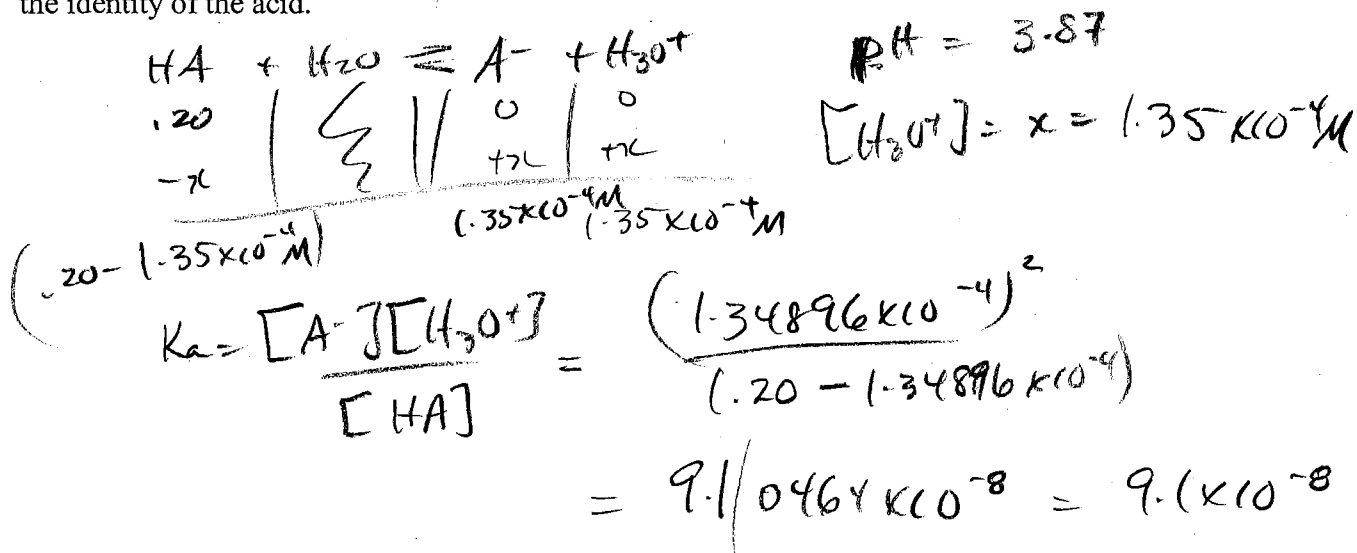 the identity of the acid.
HA + H2O ⇌ A- + H3O+
pH = 3.87
.20 | | 0 | 0
[H3O+] = x = 1.35 x 10-4 M
-x | | +x | +x
(.20 - 1.35 x 10-4 M) 1.35 x 10-4 M 1.35 x 10-4 M
Ka = [A-][H3O+] / [HA] = (1.34896 x 10-4)2 / (.20 - 1.34896 x 10-4)
= 9.1|0464 x 10-8 = 9.1 x 10-8